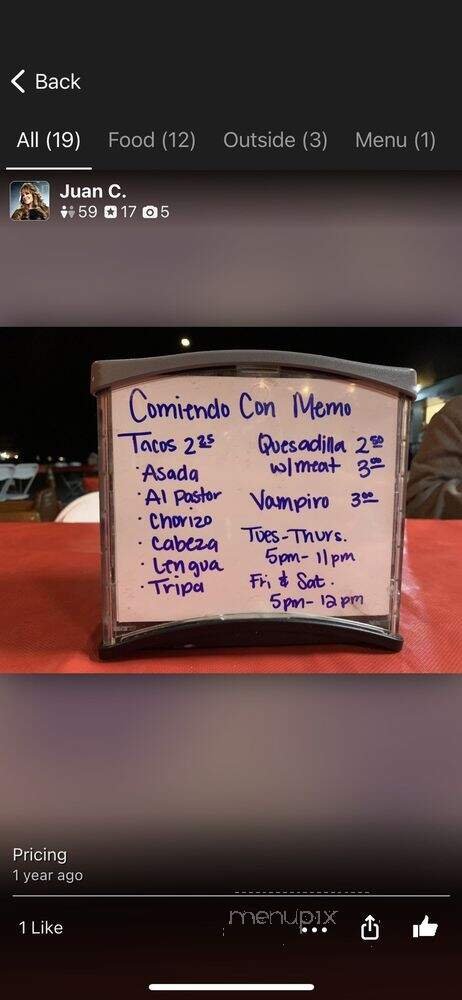 Back
All (19) Food (12) Outside (3) Menu (1)
Juan C.
59 17 5
Comiendo Con Memo
Tacos 2 25
· Asada
· Al Pastor
· Chorizo
· Cabeza
· Lengua
· Tripa
Quesadilla 2 50
w/meat 3 00
Vampiro 3 00
Tues-Thurs.
5pm-11pm
Fri & Sat.
5pm-12pm
Pricing
1 year ago
1 Like
menupix